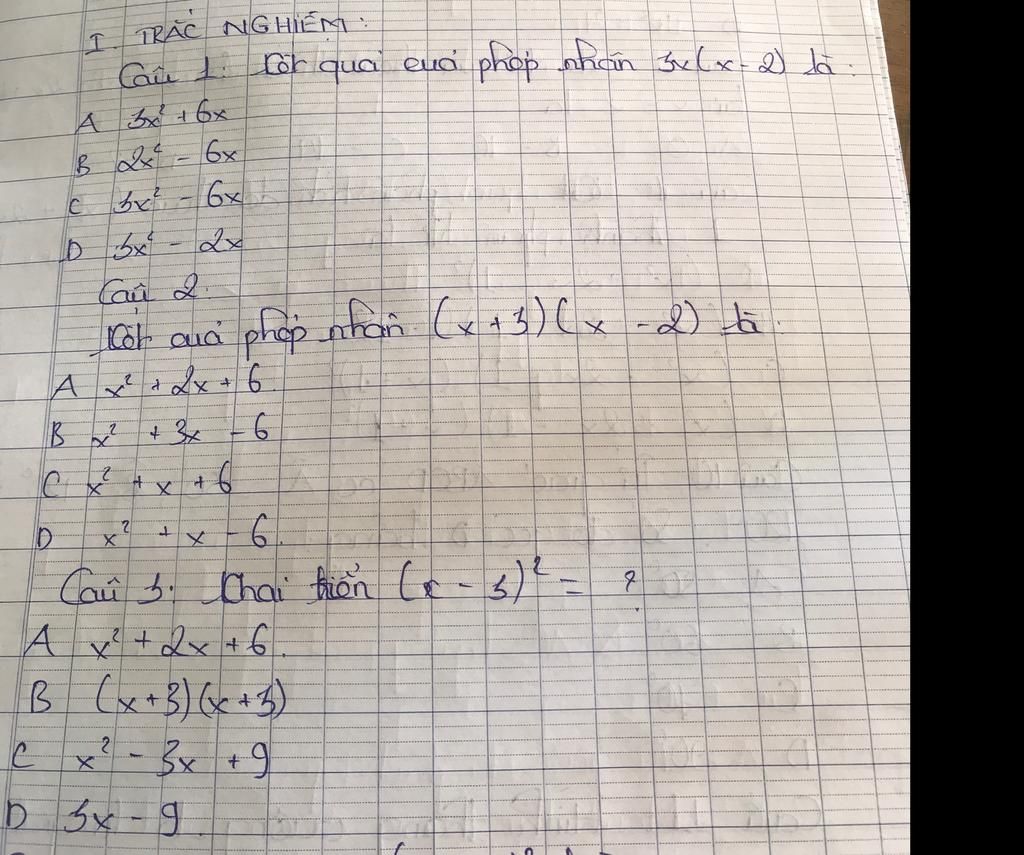 I. TRẮC NGHIỆM:
Câu 1: Kết quả cuả phép nhân 3x(x-2) là:
A 3x² + 6x
B 2x² - 6x
C 3x² - 6x
D 3x² - 2x
Câu 2.
Kết quả phép nhân (x+3)(x-2) là.
A x² + 2x + 6
B x² + 3x - 6
C x² + x + 6
D x² + x - 6.
Câu 3: Khai triển (x - 3)² = ?
A x² + 2x + 6.
B (x+3)(x+3)
C x² - 3x + 9
D 3x - 9